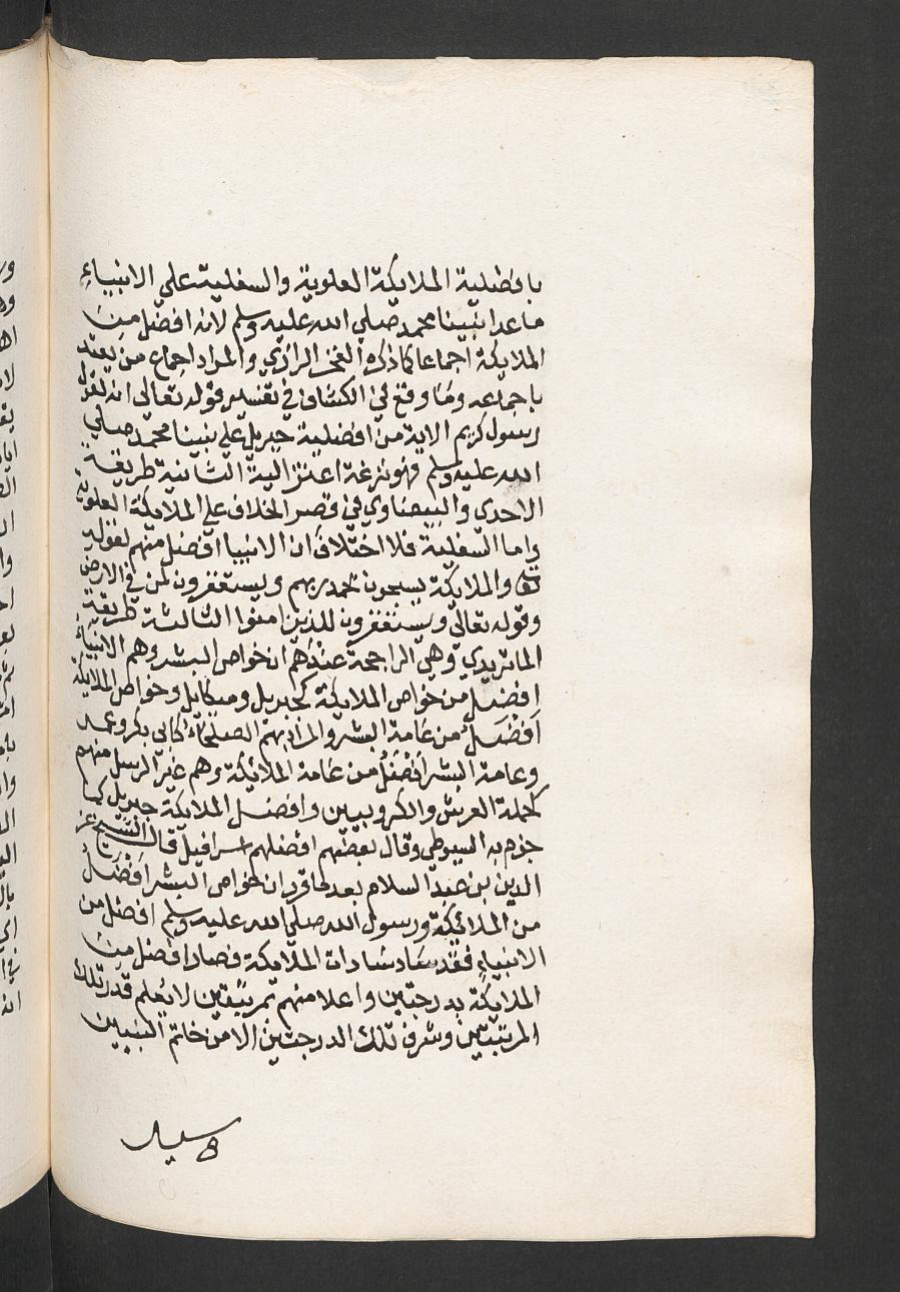 بافضلية الملايكة العلوية والسفلية علي الانبياء
ماعدا نبينا محمد صلي الله عليه وسلم لانه افضل من
الملايكة اجماعا كما ذكره الفخر الرازي والمراد اجماع من يعتد
باجماعه وما وقع في الكشاف في تفسير قوله تعالى انه لقول
رسول كريم الاية من افضلية جبريل علي نبينا محمد صلي
الله عليه وسلم فهو نزغة اعتزالية الثانية طريقة
الامدي والبيضاوي في قصر الخلاف علي الملايكة العلوية
واما السفلية فلا اختلاف ان الانبيا افضل منهم لقوله
تعا والملايكة يسبحون بحمد ربهم ويستغفرون لمن في الارض
وقوله تعالي ويستغفرون للذين امنوا الثالثة طريقة
الماتريدي وهي الراجحة عندهم ان خواص البشر وهم الانبياء
افضل من خواص الملايكة كجبريل وميكايل وخواص الملايكة
افضل من عامة البشر والمراد بهم الصلحاء كابي بكر وعمر
وعامة البشر افضل من عامة الملائكة وهم غير الرسل منهم
كحملة العرش والكروبيين وافضل الملايكة جبريل كما
جزم به السيوطي وقال بعضهم افضلهم اسرافيل قال الشيخ عز
الدين بن عبد السلام بعدما قرر ان خواص البشر افضل
من الملائكة ورسول الله صلي الله عليه وسلم افضل من
الانبياء فقد ساد سادات الملايكة فصار افضل من
الملايكة بدرجتين واعلا منهم بمرتبتين لا يعلم قدر تلك
المرتبتين وشرف تلك الدرجتين الا من خاتم النبيين
وسيد